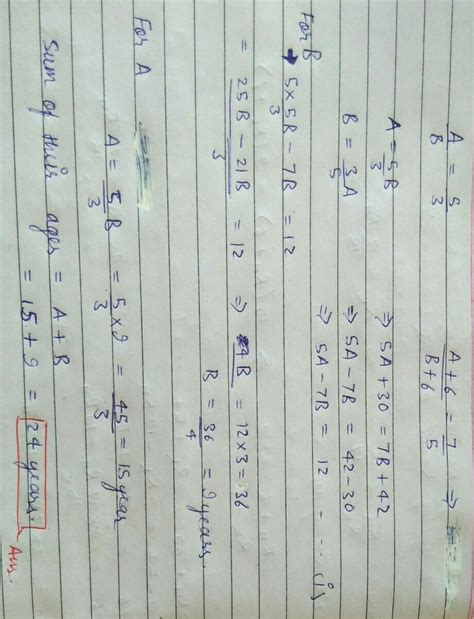 A/B = 5/3        A+6/B+6 = 7/5 ⇒
A = 5B/3        ⇒ 5A+30 = 7B+42
B = 3A/5        ⇒ 5A-7B = 42-30
⇒ 5A-7B = 12 - - - (i)
For B
5×5B/3 - 7B = 12
= 25B - 21B/3 = 12 ⇒ 4B = 12×3 = 36
B = 36/4 = 9 years.
For A
A = 5/3 B = 5/3 × 9 = 45/3 = 15 year
Sum of their ages = A + B
= 15 + 9 = 24 years.
Ans.